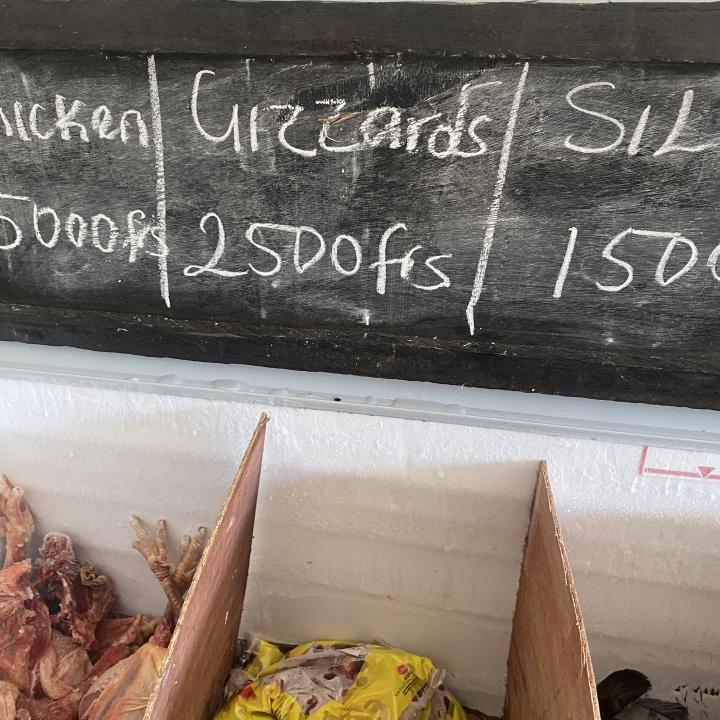 hicken | Gizzards | SIL
5000frs | 2500frs | 1500